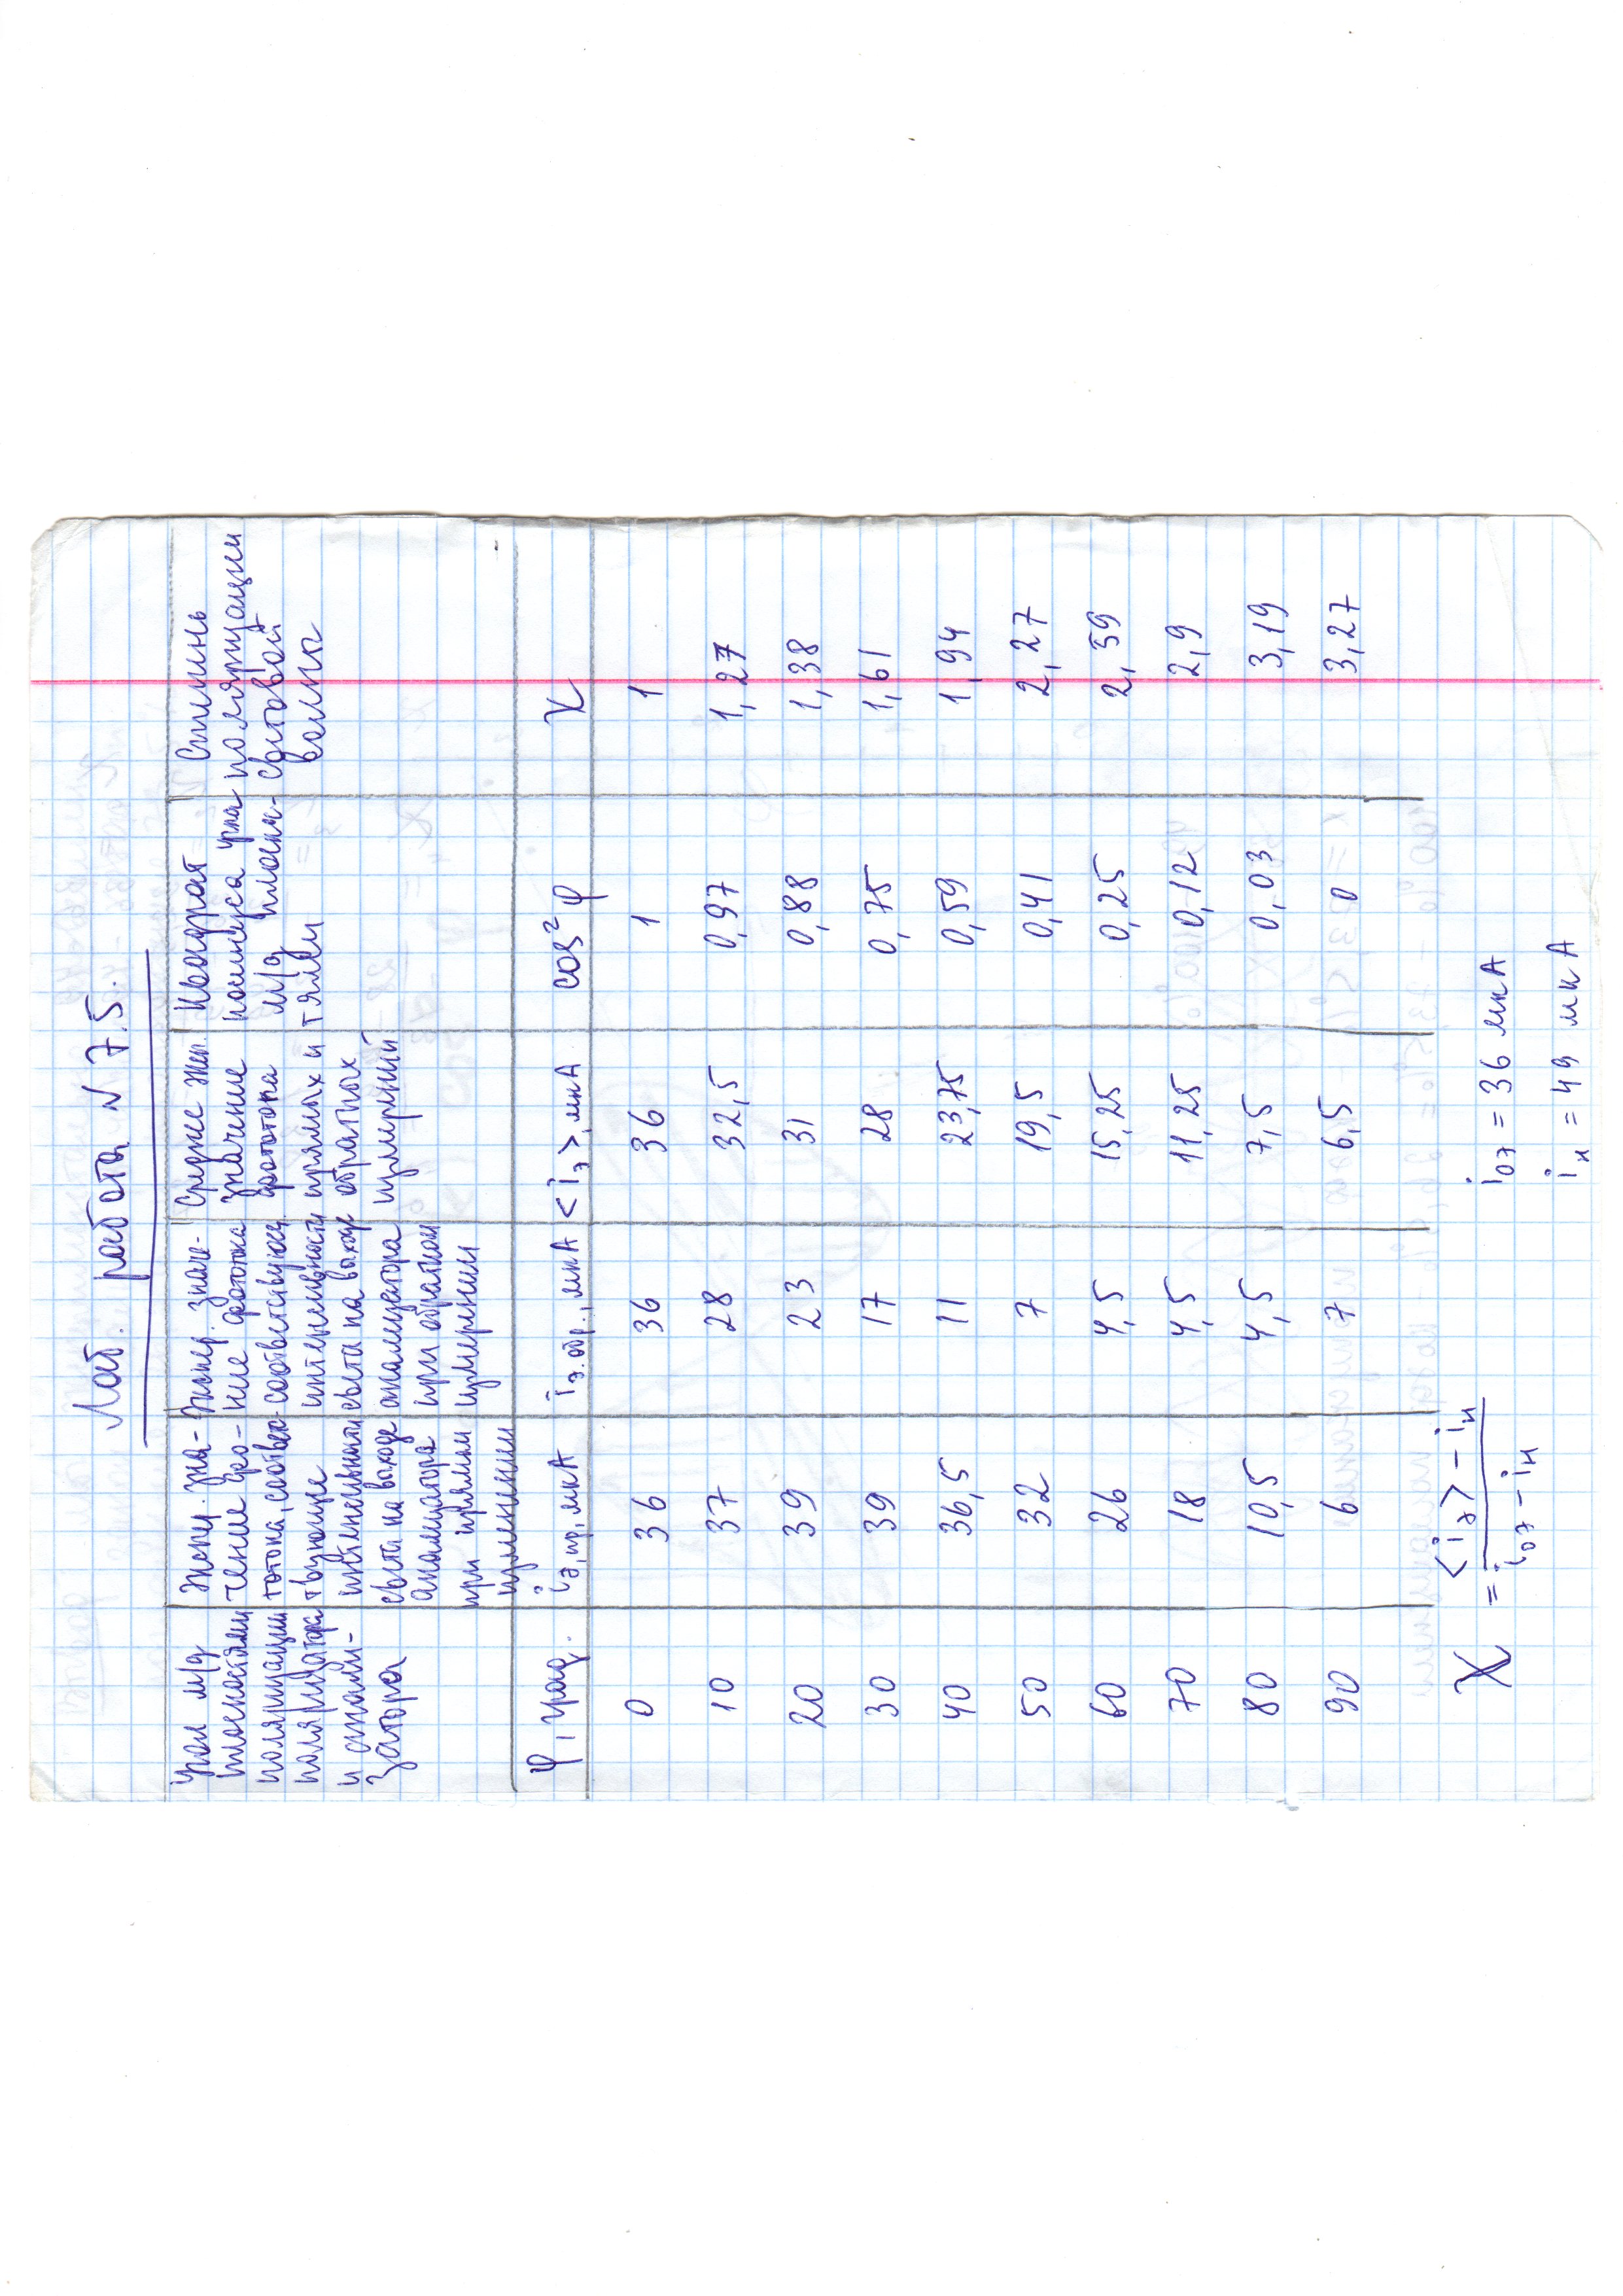 Лаб. работа № 7.5.
Угол м/д
плоскостями
поляризации
поляризатора
и анали-
затора
Экспер. зна-
чение фо-
тотока, соответс-
твующие
интенсивности
света на выходе
анализатора
при прямом
изменении
Экспер. значе-
ние фототока
соответствующ.
интенсивности
света на выходе
анализатора
при обратном
измерении
Среднее эксп.
значение
фототока
прямых и
обратных
измерений
Квадрат
косинуса угла
м/д плоскос-
тями
Степень
поляризации
световой
волны
φ, град. iэ,пр, мкА iэ.обр., мкА <iэ>, мкА cos² φ χ
0 36 36 36 1 1
10 37 28 32,5 0,97 1,27
20 39 23 31 0,88 1,38
30 39 17 28 0,75 1,61
40 36,5 11 23,75 0,59 1,94
50 32 7 19,5 0,41 2,27
60 26 4,5 15,25 0,25 2,59
70 18 4,5 11,25 0,12 2,9
80 10,5 4,5 7,5 0,03 3,19
90 6 7 6,5 0 3,27
χ = <iэ> - iн / i0э - iн
i0э = 36 мкА
iн = 49 мкА